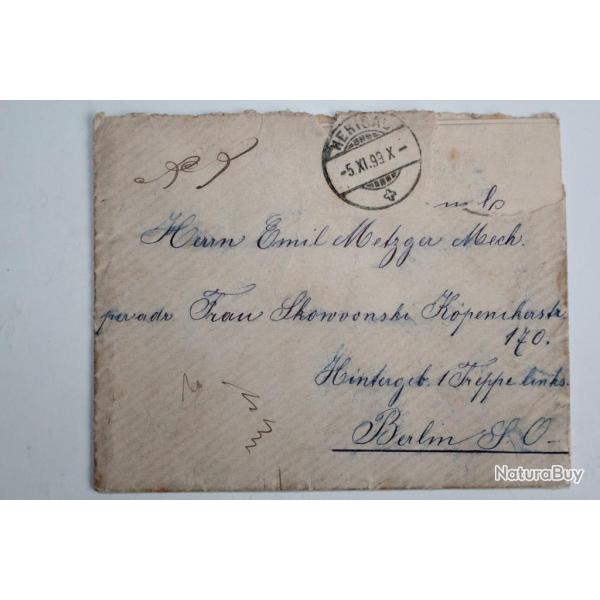 HERISAU
-5.XI.93.X-
Herrn Emil Metzger Mech.
per adr Frau Skowvonski Köpenikerstr.
170.
Hintergeb. 1 Treppe links.
Berlin S. O-
NaturaBuy